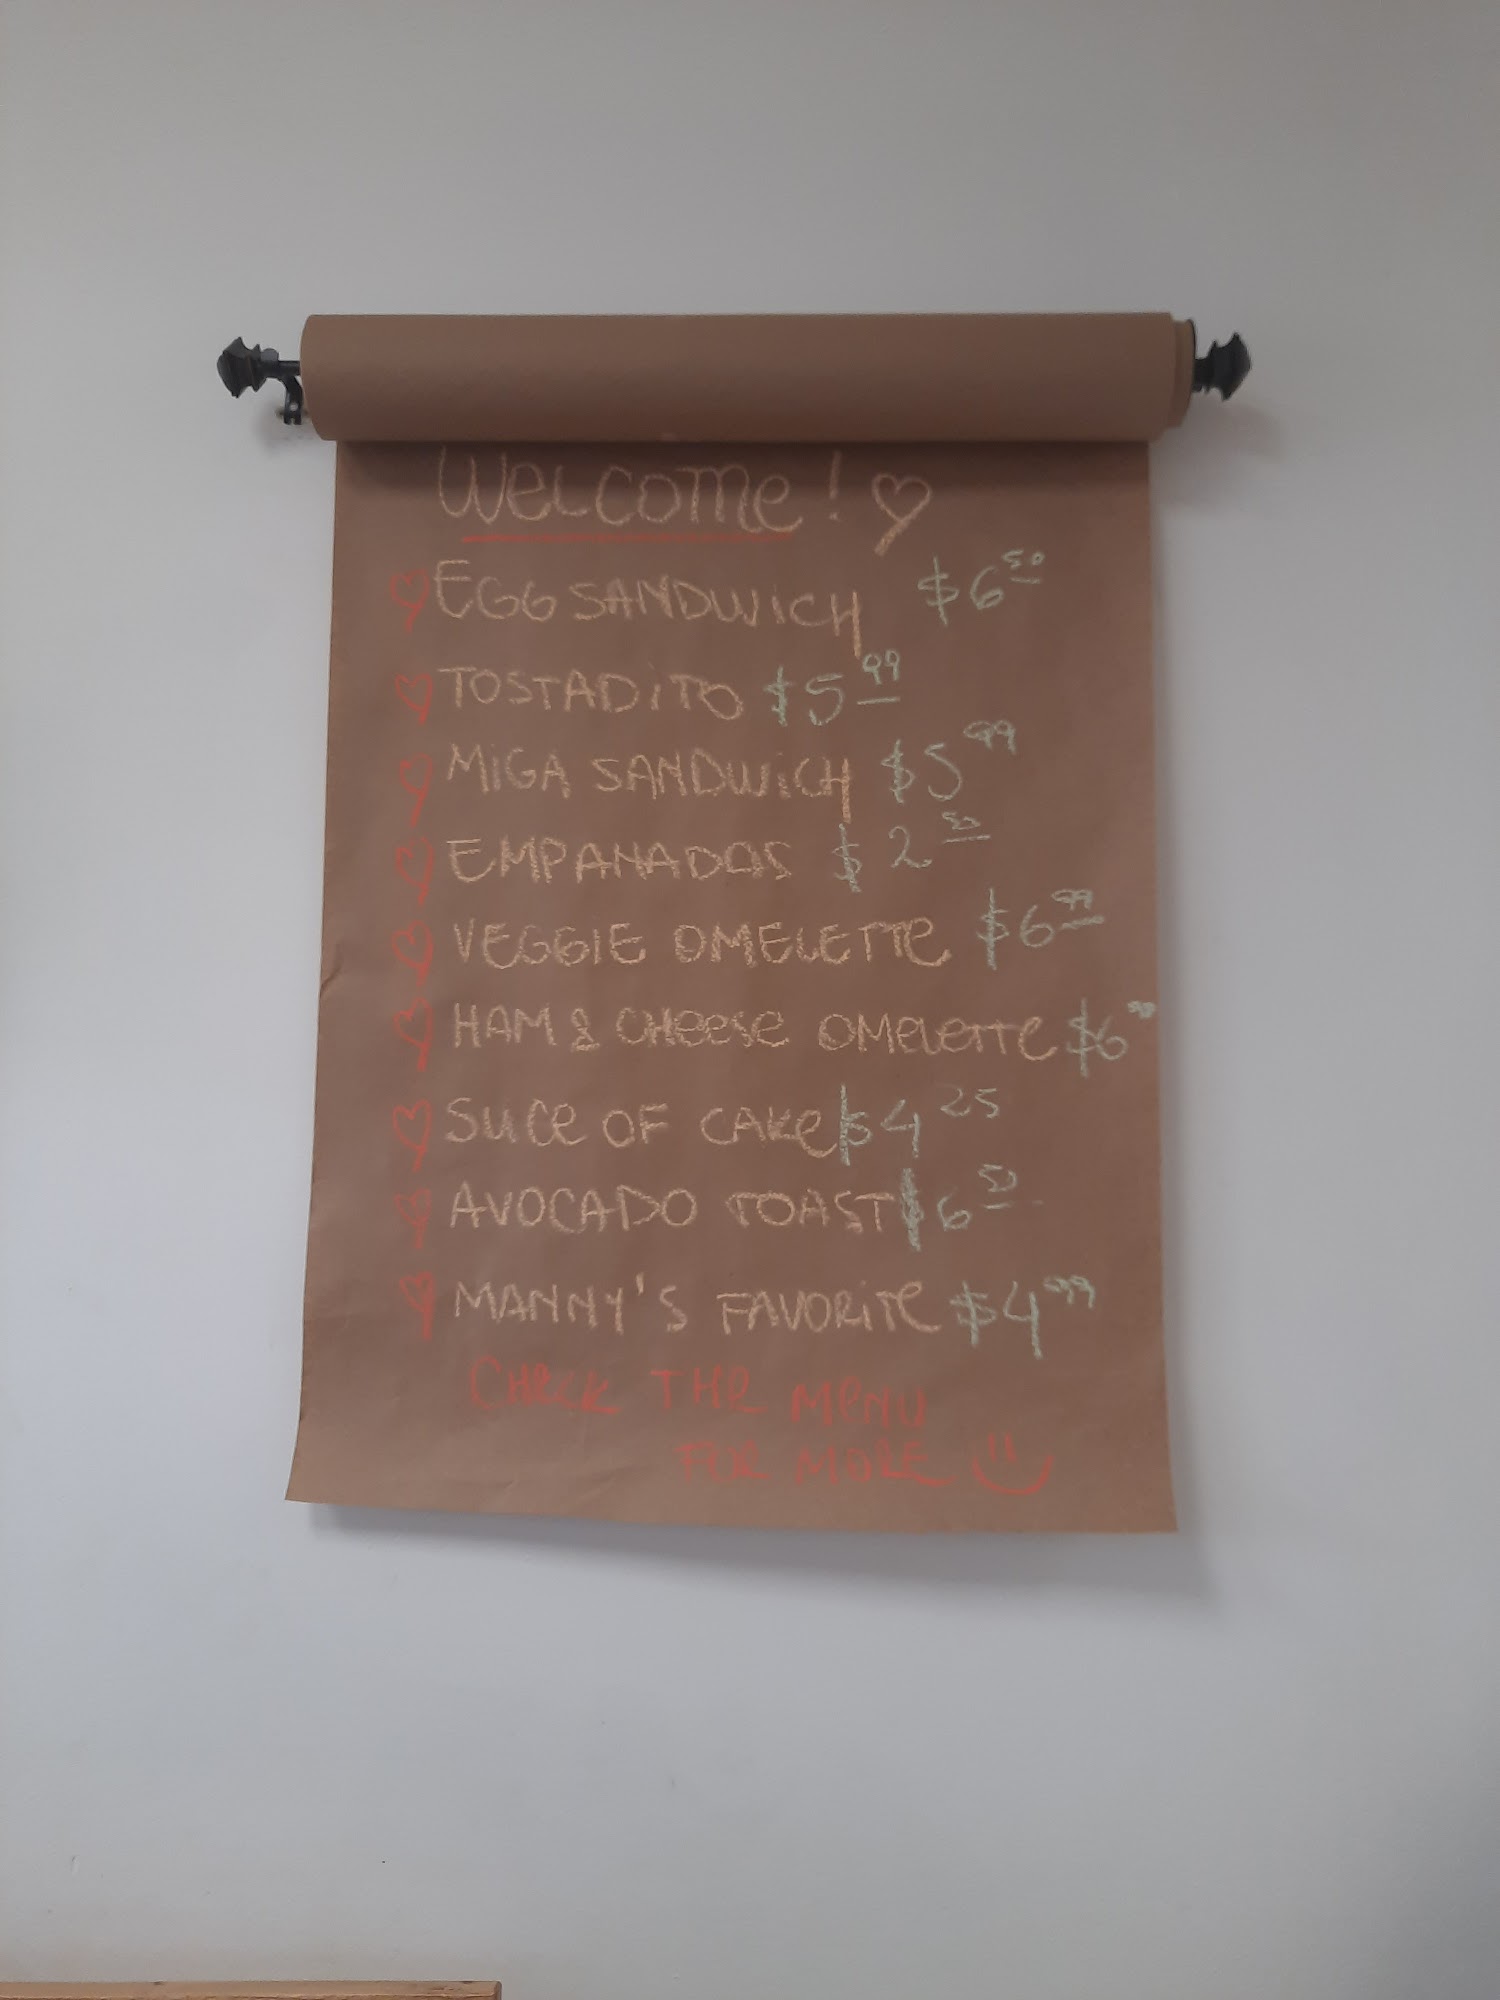 WELCOME!
EGG SANDWICH $6 50
TOSTADITO $5 99
MIGA SANDWICH $5 99
EMPANADAS $2 50
VEGGIE OMELETTE $6 99
HAM & CHEESE OMELETTE $6
SLICE OF CAKE $4 25
AVOCADO TOAST $6 50
MANNY'S FAVORITE $4 99
CHECK THE MENU
FOR MORE